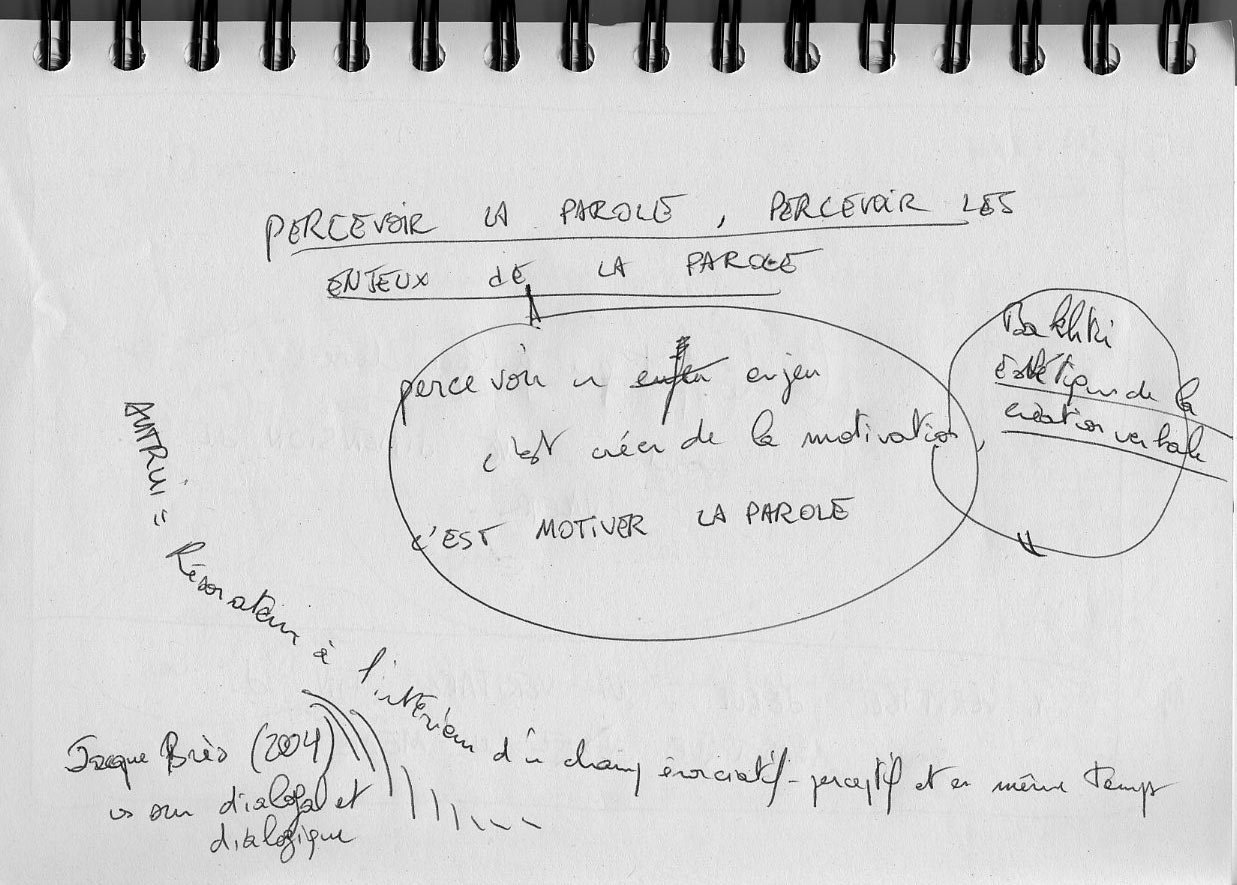 PERCEVOIR LA PAROLE, PERCEVOIR LES
ENJEUX dE LA PAROLE
percevoir un enjeu
c'est créer de la motivation,
c'EST MOTIVER LA PAROLE
Bakhti
Esthétique de la
création verbale
AUTRUI = Résonateur à l'intérieur d'un champ énonciatif-perceptif et en même temps
Jacque Brès (2004)
sur dialogal et
dialogique